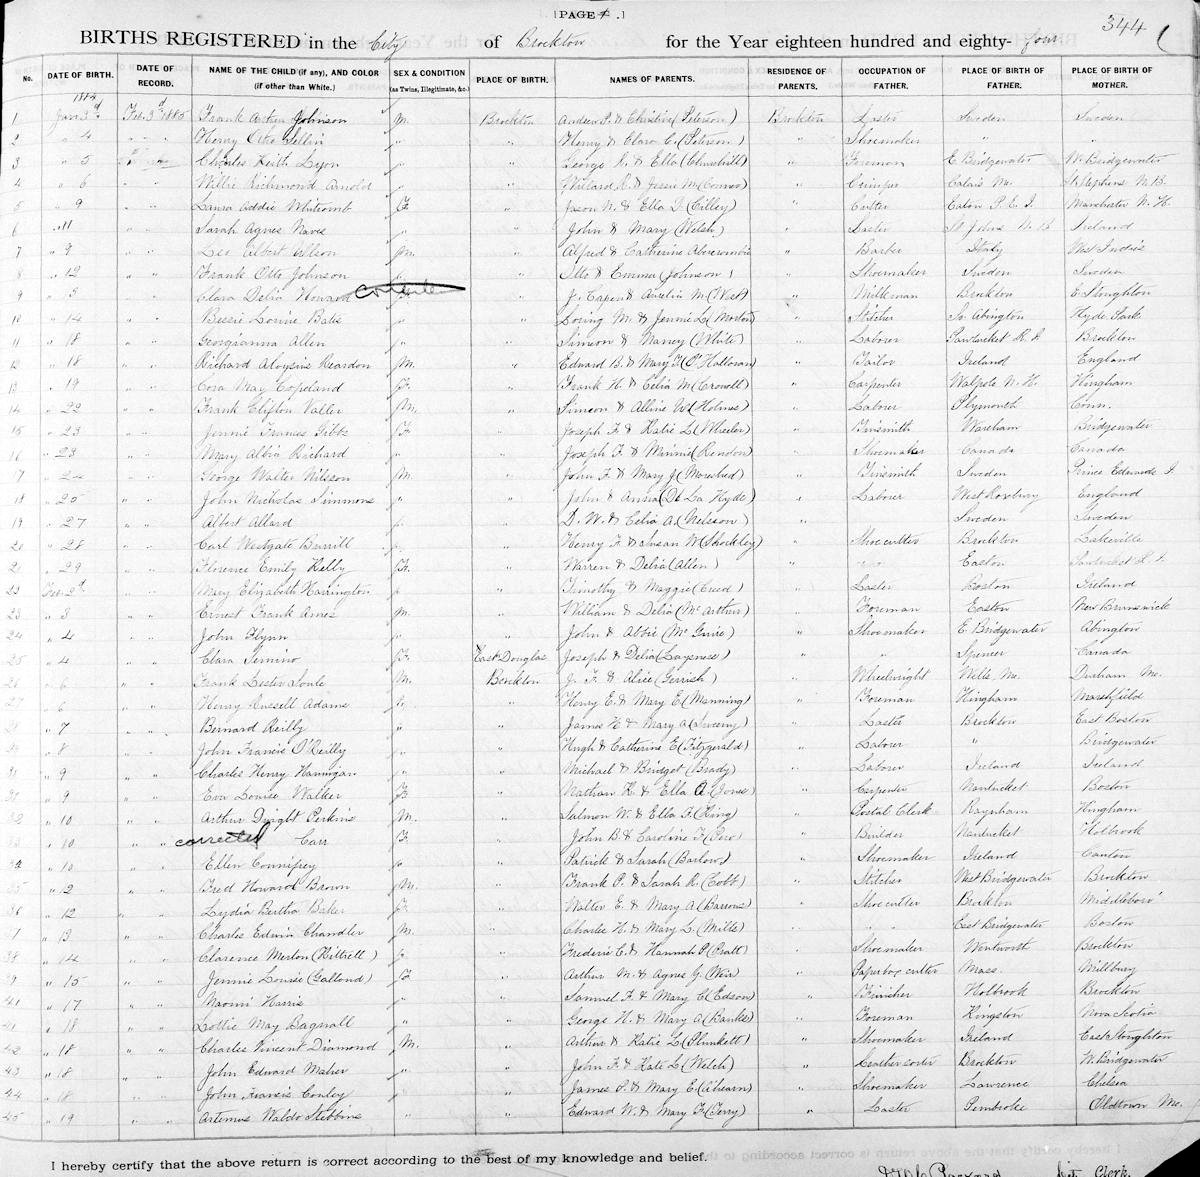 PAGE
344
BIRTHS REGISTERED in the City of Brockton for the Year eighteen hundred and eighty-four
No. DATE OF BIRTH. DATE OF RECORD. NAME OF THE CHILD (if any), AND COLOR (if other than White.) SEX & CONDITION (as Twins, Illegitimate, &c.) PLACE OF BIRTH. NAMES OF PARENTS. RESIDENCE OF PARENTS. OCCUPATION OF FATHER. PLACE OF BIRTH OF FATHER. PLACE OF BIRTH OF MOTHER.
1884
1 Jan 3d Feb. 3d 1885 Frank Arthur Johnson M. Brockton Andrew P. & Christine (Peterson) Brockton Laster Sweden Sweden
2 " 4 " " Henry Otto Sellin " " Henry & Clara C. (Peterson) " Shoemaker " "
3 " 5 Charles Keith Lyon " " George R. & Ella (Churchill) " Foreman E. Bridgewater W. Bridgewater
4 " 6 " " Willie Richmond Arnold " " Willard R. & Jessie M. " Crimper Calais Me. St. Stephens N.B.
5 " 9 " " Laura Addie Whitcomb F. " Jason N. & Ella J. (Cilley) " Cutter Manchester N.H.
6 " 11 " " Sarah Agnes " " John & Mary (Welsh) " Laster St. Johns Ireland
7 " 9 " " Leo Albert Allson M. " Alfred & Catherine (Abercrombie " Barber Italy West Indies
8 " 12 " " Frank Otto Johnson " " Otto & Emma (Johnson) " Shoemaker Sweden Sweden
9 " 3 " " Clara Delia Howard " " J. Capen & Amelia M. (West) " Milkman Brockton E. Stoughton
10 " 14 " " Bessie Lorine Bates " " Loring M. & Jennie L. (Morton) " Stitcher So. Abington Hyde Park
11 " 18 " " Georgianna Allen " " Simeon & Nancy (White) " Laborer Pawtucket R.I. Brockton
12 " 18 " " Richard Aloysius Reardon M. " Edward B. & Mary F. (O'Halloran) " Tailor Ireland England
13 " 19 " " Cora May Copeland F. " Frank H. & Celia M. (Cronell) " Carpenter Walpole N.H. Hingham
14 " 22 " " Frank Clifton Valler M. " Simeon & Alline W. (Holmes) " Laborer Plymouth Conn.
15 " 23 " " Jennie Frances Gibbs F. " Joseph F. & Katie L. (Wheeler) " Tinsmith Wareham Bridgewater
16 " 23 " " Mary Albia Richard " " Joseph F. & Minnie (Rendon) " Shoemaker Canada Canada
17 " 24 " " George Walter Nilsson M. " John F. & Mary J. " Tinsmith Sweden Prince Edwards I.
18 " 25 " " John Nicholas Simmons " " John & Anna (De La Hyde) " Laborer West Roxbury England
19 " 27 " " Albert Allard " " D. W. & Celia A. (Nelsson) " Sweden Sweden
20 " 28 " " Carl Westgate Burrill " " Henry F. & Susan W. (Shockley) " Shoe cutter Brockton Lakeville
21 " 29 " " Florence Emily Kelly F. " Warren & Delia (Allen) " " " Easton Pawtucket R.I.
22 Feb 2d " " Mary Elizabeth Harrington " " Timothy & Maggie (Creed) " Laster Boston Ireland
23 " 3 " " Ernest Frank Ames M. " William & Delia (McArthur) " Foreman Easton New Brunswick
24 " 4 " " John Flynn " " John & Abbie (McGuire) " Shoemaker E. Bridgewater Abington
25 " 4 " " Clara F. East Douglas Joseph & Delia " " Spencer Canada
26 " 6 " " Frank Lester Soule M. Brockton J. F. & Alice (Gerrish) " Wheelwright Wells, Me. Durham Me.
27 " 6 " " Henry Russell Adams " " Henry E. & Mary E. (Manning) " Foreman Hingham Marshfield
28 " 7 " " Bernard Reilly " " James H. & Mary A. (Sweeny) " Laster Brockton East Boston
29 " 8 " " John Francis O'Reilly " " Hugh & Catherine E. (Fitzgerald) " Laborer " Bridgewater
" 9 " " Charles Henry Hannigan " " Michael & Bridget (Brady) " Laborer Ireland Ireland
31 " 9 " " Eva Louise Walker F. " Nathan K. & Ella A. (Jones) " Carpenter Nantucket Boston
32 " 10 " " Arthur Dwight Perkins M. " Salmon W. & Ella F. (King) " Postal Clerk Raynham Hingham
33 " 10 " " corrected Carr F. " John B. & Caroline F. " Builder Nantucket Holbrook
" 10 " " Ellen Connifrey " " Patrick & Sarah (Barlow) " Shoemaker Ireland Canton
35 " 12 " " Fred Howard Brown M. " Frank P. & Sarah R. (Cobb) " Stitcher West Bridgewater Brockton
36 " 12 " " Lydia Bertha Baker F. " Walter E. & Mary A. (Barrows) " Shoe cutter Brockton Middleboro'
37 " 13 " " Charles Edwin Chandler M. " Charles H. & Mary L. (Mills) " " " East Bridgewater Boston
38 " 14 " " Clarence Merton (Kittrell) " " Frederic C. & Hannah P. (Pratt) " Shoemaker Wentworth Brockton
39 " 15 " " Jennie Louise (Gallond) F. " Arthur M. & Agnes G. (Weir) " Paperbox cutter Mass. Millbury
" 17 " " Naomi Harris " " Samuel F. & Mary C. (Edson) " Finisher Holbrook Brockton
41 " 18 " " Lottie May Bagnall " " George H. & Mary A. (Banks) " Foreman Kingston Nova Scotia
42 " 18 " " Charles Vincent Diamond M. " Arthur & Katie L. (Plunkett) " Shoemaker Ireland East Stoughton
43 " 18 " " John Edward Maher " " John F. & Kate L. (Welch) " Brockton W. Bridgewater
44 " 18 " " John Francis Conley " " James P. & Mary E. (Ahearn) " Shoemaker Lawrence Chelsea
45 " 19 " " Artemus Waldo Stebbins " " Edward W. & Mary F. (Terry) " Laster Pembroke Oldtown Me.
I hereby certify that the above return is correct according to the best of my knowledge and belief.
Packard City Clerk.